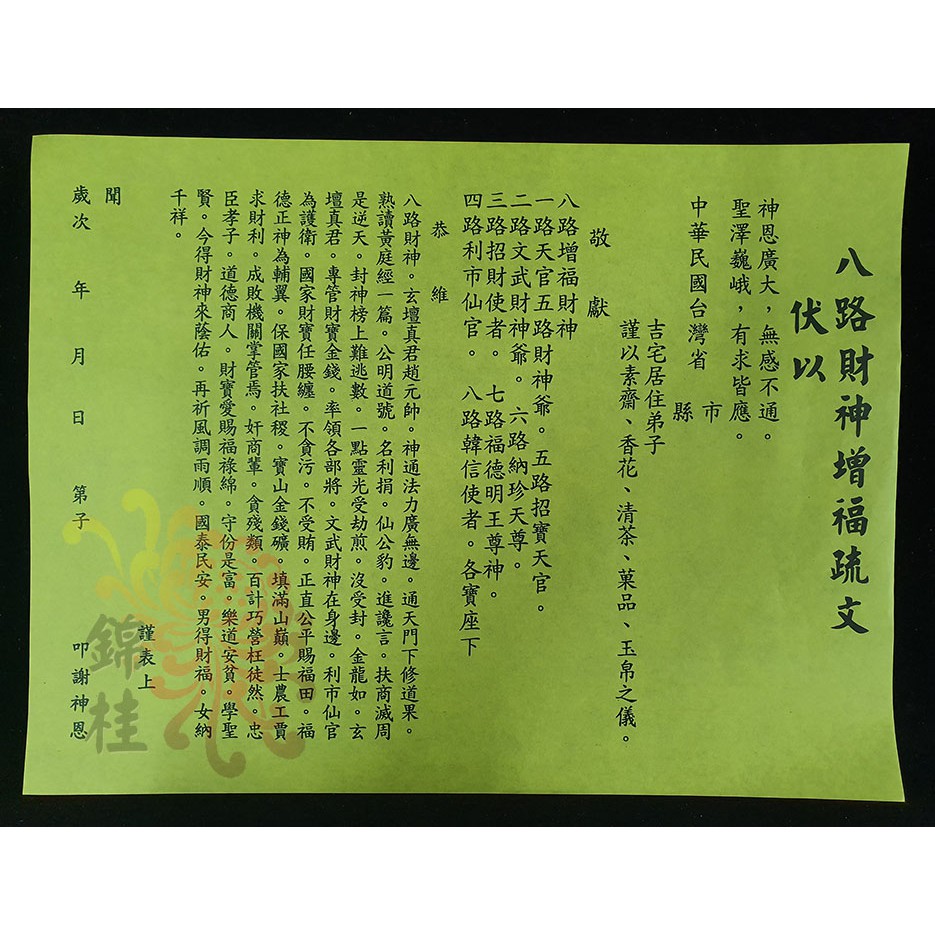 八路財神增福疏文
伏以
神恩廣大，無感不通。
聖澤巍峨，有求皆應。
中華民國台灣省 市
縣
吉宅居住弟子
謹以素齋、香花、清茶、菓品、玉帛之儀。
敬獻
八路增福財神
一路天官五路財神爺。五路招寶天官。
二路文武財神爺。六路納珍天尊。
三路招財使者。七路福德明王尊神。
四路利市仙官。八路韓信使者。各寶座下
恭維
八路財神。玄壇真君趙元帥。神通法力廣無邊。通天門下修道果。
熟讀黃庭經一篇。公明道號。名利捐。仙公豹。進讒言。扶商滅周
是逆天。封神榜上難逃數。一點靈光受劫煎。沒受封。金龍如。玄
壇真君。專管財寶金錢。率領各部將。文武財神在身邊。利市仙官
為護衛。國家財寶任腰纏。不貪污。不受賄。正直公平賜福田。福
德正神為輔翼。保國家扶社稷。寶山金錢礦。填滿山巔。士農工賈
求財利。成敗機關掌管焉。奸商輩。貪殘類。百計巧營枉徒然。忠
臣孝子。道德商人。財寶愛賜福祿綿。守份是富。樂道安貧。學聖
賢。今得財神來蔭佑。再祈風調雨順。國泰民安。男得財福。女納
千祥。
謹表上
聞
歲次 年 月 日 第子 叩謝神恩
錦桂